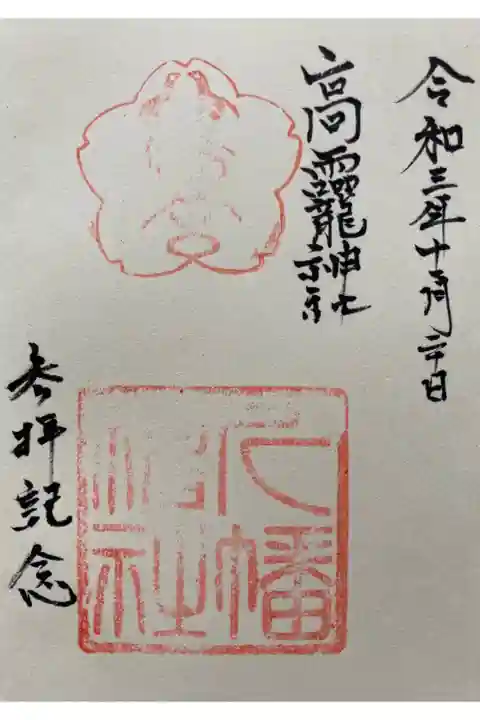 令和三年十月二十日
高龗神社
八幡神社
参拝記念